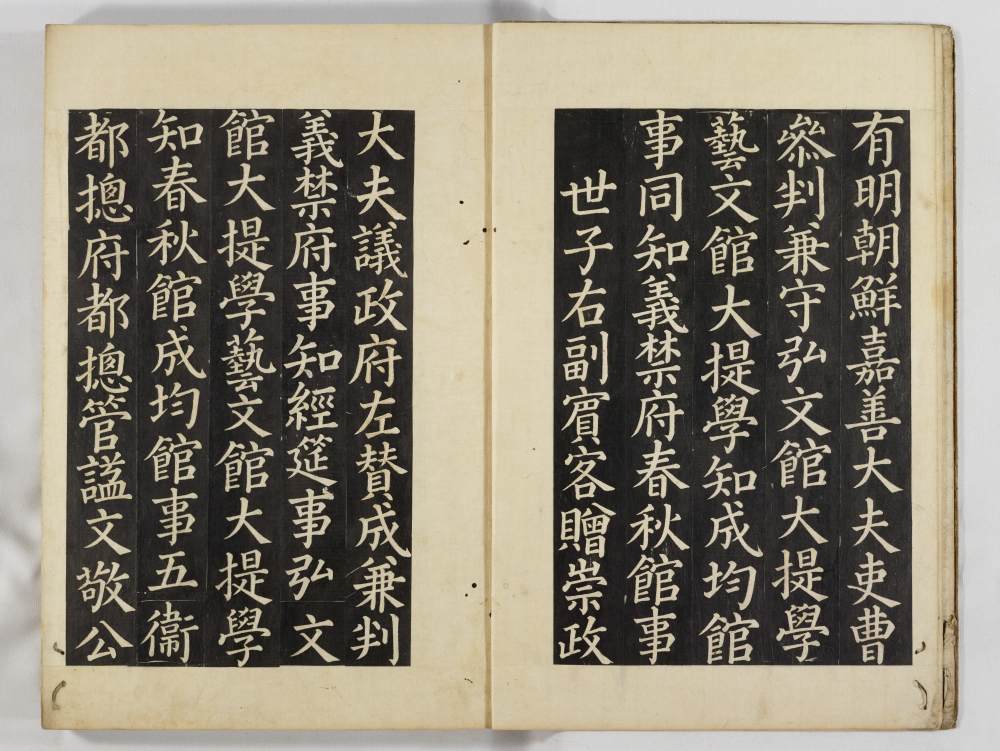 有明朝鮮嘉善大夫吏曹
叅判兼守弘文館大提學
藝文館大提學知成均館
事同知義禁府春秋館事
世子右副賓客贈崇政
大夫議政府左贊成兼判
義禁府事知經筵事弘文
館大提學藝文館大提學
知春秋館成均館事五衛
都摠府都摠管諡文敬公